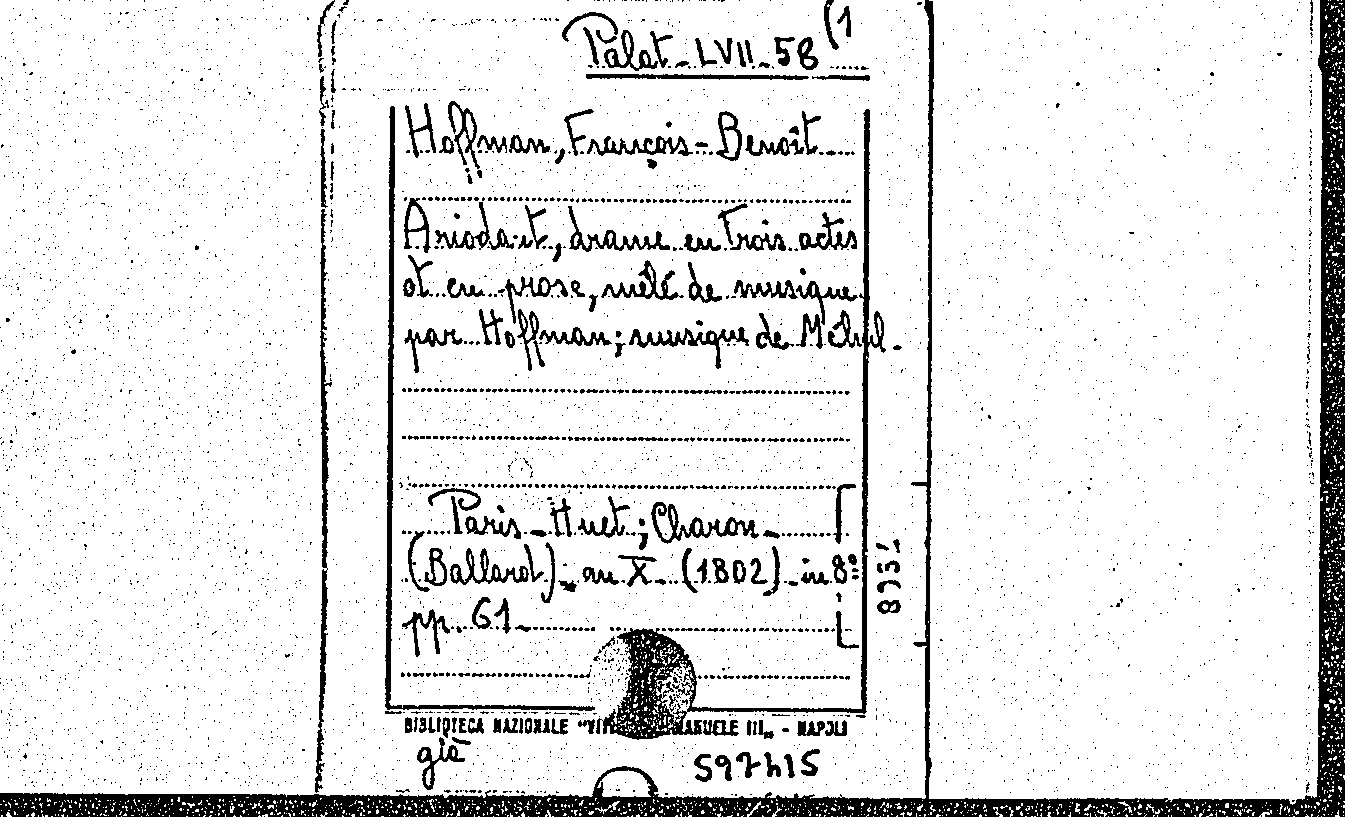 Palat. LVII. 58 (1
Hoffman, François-Benoît
Ariodant, drame en trois actes
et en prose, mêlé de musique
par Hoffman; musique de Méhul.
Paris - Huet; Charon -
(Ballard); an X - (1802) - in 8º
pp. 61.
BIBLIOTECA NAZIONALE "VITT MANUELE III„ - NAPOLI
già
597415